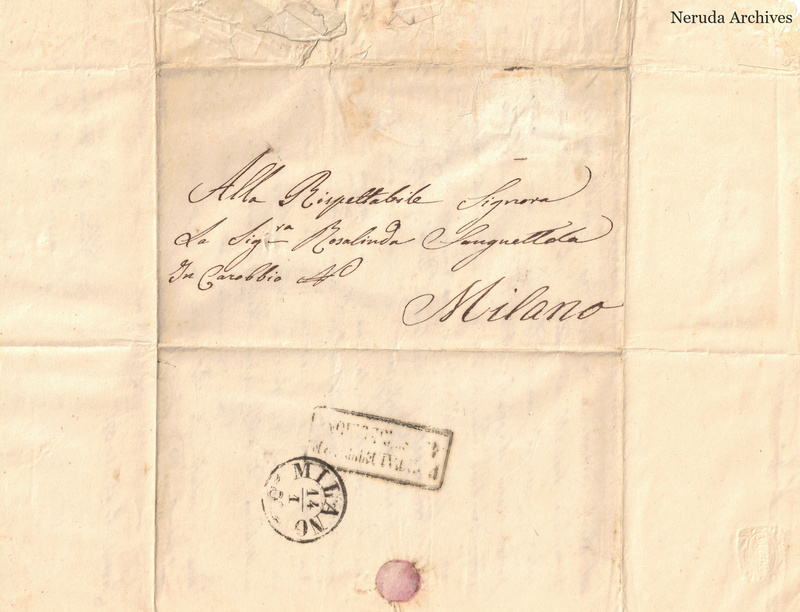 Neruda Archives
Alla Rispettabile Signora
La Sig.ra Rosalinda Sanguettola
In Carobbio N°
Milano
MILANO
14
1